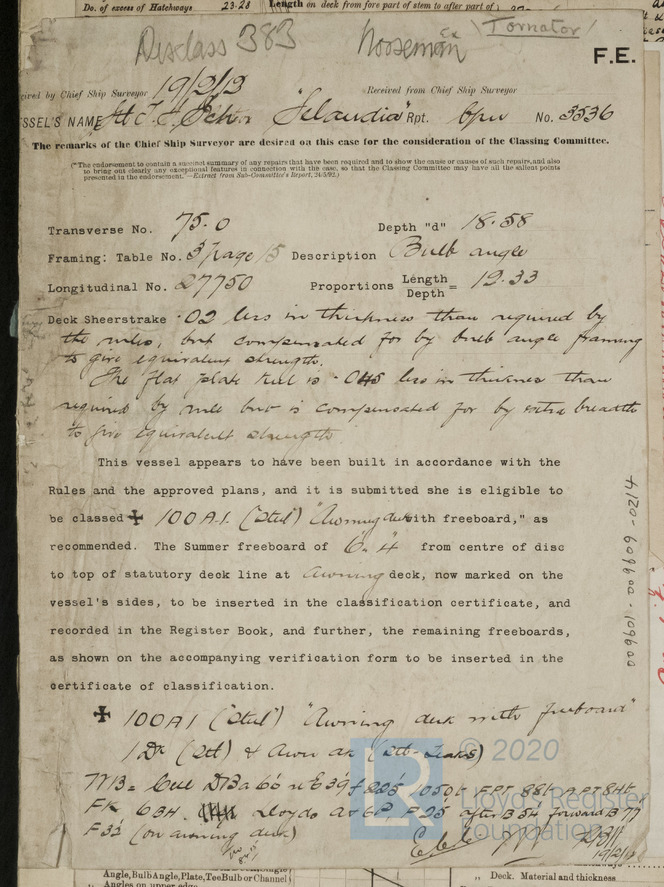 Do. of excess of Hatchways 23·28 Length on deck from fore part of stem to after part of
Disclass 383 Norseman Ex Tornator
F.E.
ived by Chief Ship Surveyor 19/2/12 Received from Chief Ship Surveyor
SSEL'S NAME "Selandia" Rpt. Cpn No. 3536
The remarks of the Chief Ship Surveyor are desired on this case for the consideration of the Classing Committee.
(*The endorsement to contain a succinct summary of any repairs that have been required and to show the cause or causes of such repairs, and also
to bring out clearly any exceptional features in connection with the case, so that the Classing Committee may have all the salient points
presented in the endorsement."—Extract from Sub-Committee's Report, 24/5/92.)
Transverse No. 75·0 Depth "d" 18·58
Framing: Table No. 3 page 15 Description Bulb angle
Longitudinal No. 27750 Proportions Length / Depth = 12·33
Deck Sheerstrake ·02 less in thickness than required by
the rules, but compensated for by bulb angle framing
to give equivalent strength.
The flat plate keel is less in thickness than
required by rule but is compensated for by extra breadth
to give equivalent strength
This vessel appears to have been built in accordance with the
Rules and the approved plans, and it is submitted she is eligible to
be classed ✠ 100A.1. (Steel) "Awning deck with freeboard," as
recommended. The Summer freeboard of 6'. 4" from centre of disc
to top of statutory deck line at Awning deck, now marked on the
vessel's sides, to be inserted in the classification certificate, and
recorded in the Register Book, and further, the remaining freeboards,
as shown on the accompanying verification form to be inserted in the
certificate of classification.
✠ 100A1 (Steel) "Awning deck with freeboard"
1 Dk (Stl) & Awn dk
Cell DBa 66' u E39' f 225' 1050t FPT 88t APT 84t
FK 6BH Lloyds A&CP. F25 after B54 forward B77
F33' (on awning deck)
19/2/12
4120-609600-109600
© 2020
Lloyd's Register
Foundation
Angle, Bulb Angle, Plate, Tee Bulb or Channel
Angles on upper edge
„ Deck. Material and thickness